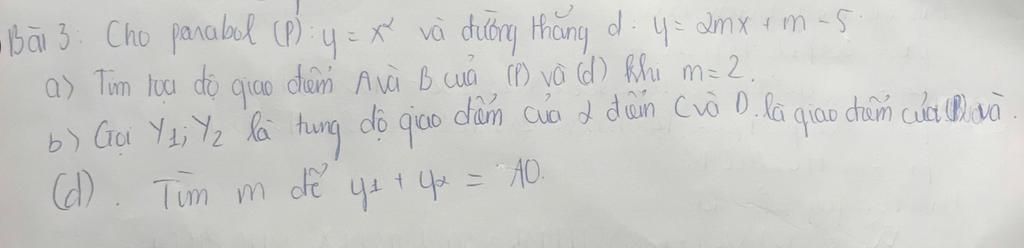 Bài 3: Cho parabol (P): y = x² và đường thẳng d: y = 2mx + m - 5.
a) Tìm tọa độ giao điểm A và B của (P) và (d) khi m = 2.
b) Gọi Y1; Y2 là tung độ giao điểm của 2 điểm C và D. là giao điểm của (P) và
(d). Tìm m để y1 + y2 = 10.